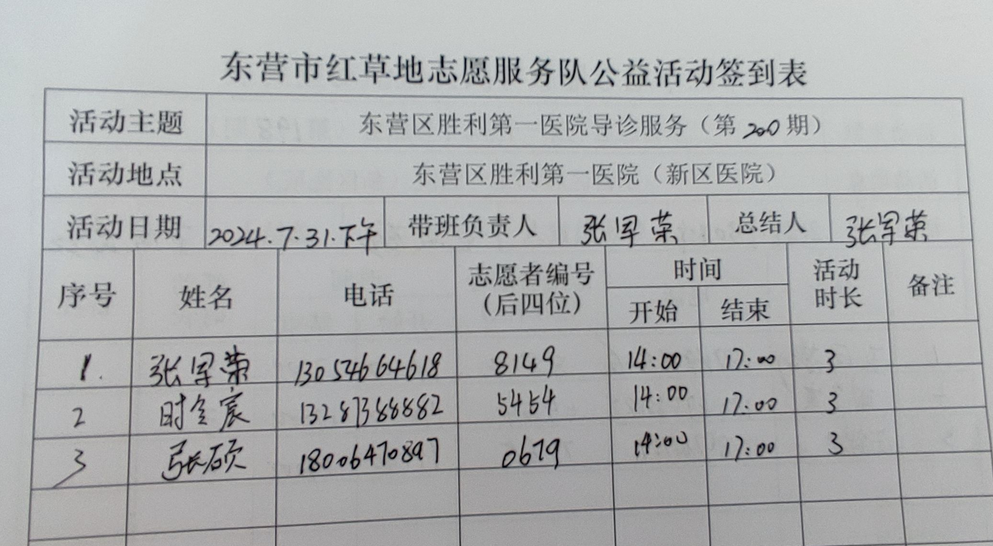 东营市红草地志愿服务队公益活动签到表
活动主题 东营区胜利第一医院导诊服务（第200期）
活动地点 东营区胜利第一医院（新区医院）
活动日期 2024.7.31.下午 带班负责人 张军荣 总结人 张军荣
序号 姓名 电话 志愿者编号（后四位） 时间 开始 结束 活动时长 备注
1. 张军荣 13054664618 8149 14:00 17:00 3
2 时金宸 13287388882 5454 14:00 17:00 3
3 张硕 18006470897 0679 14:00 17:00 3